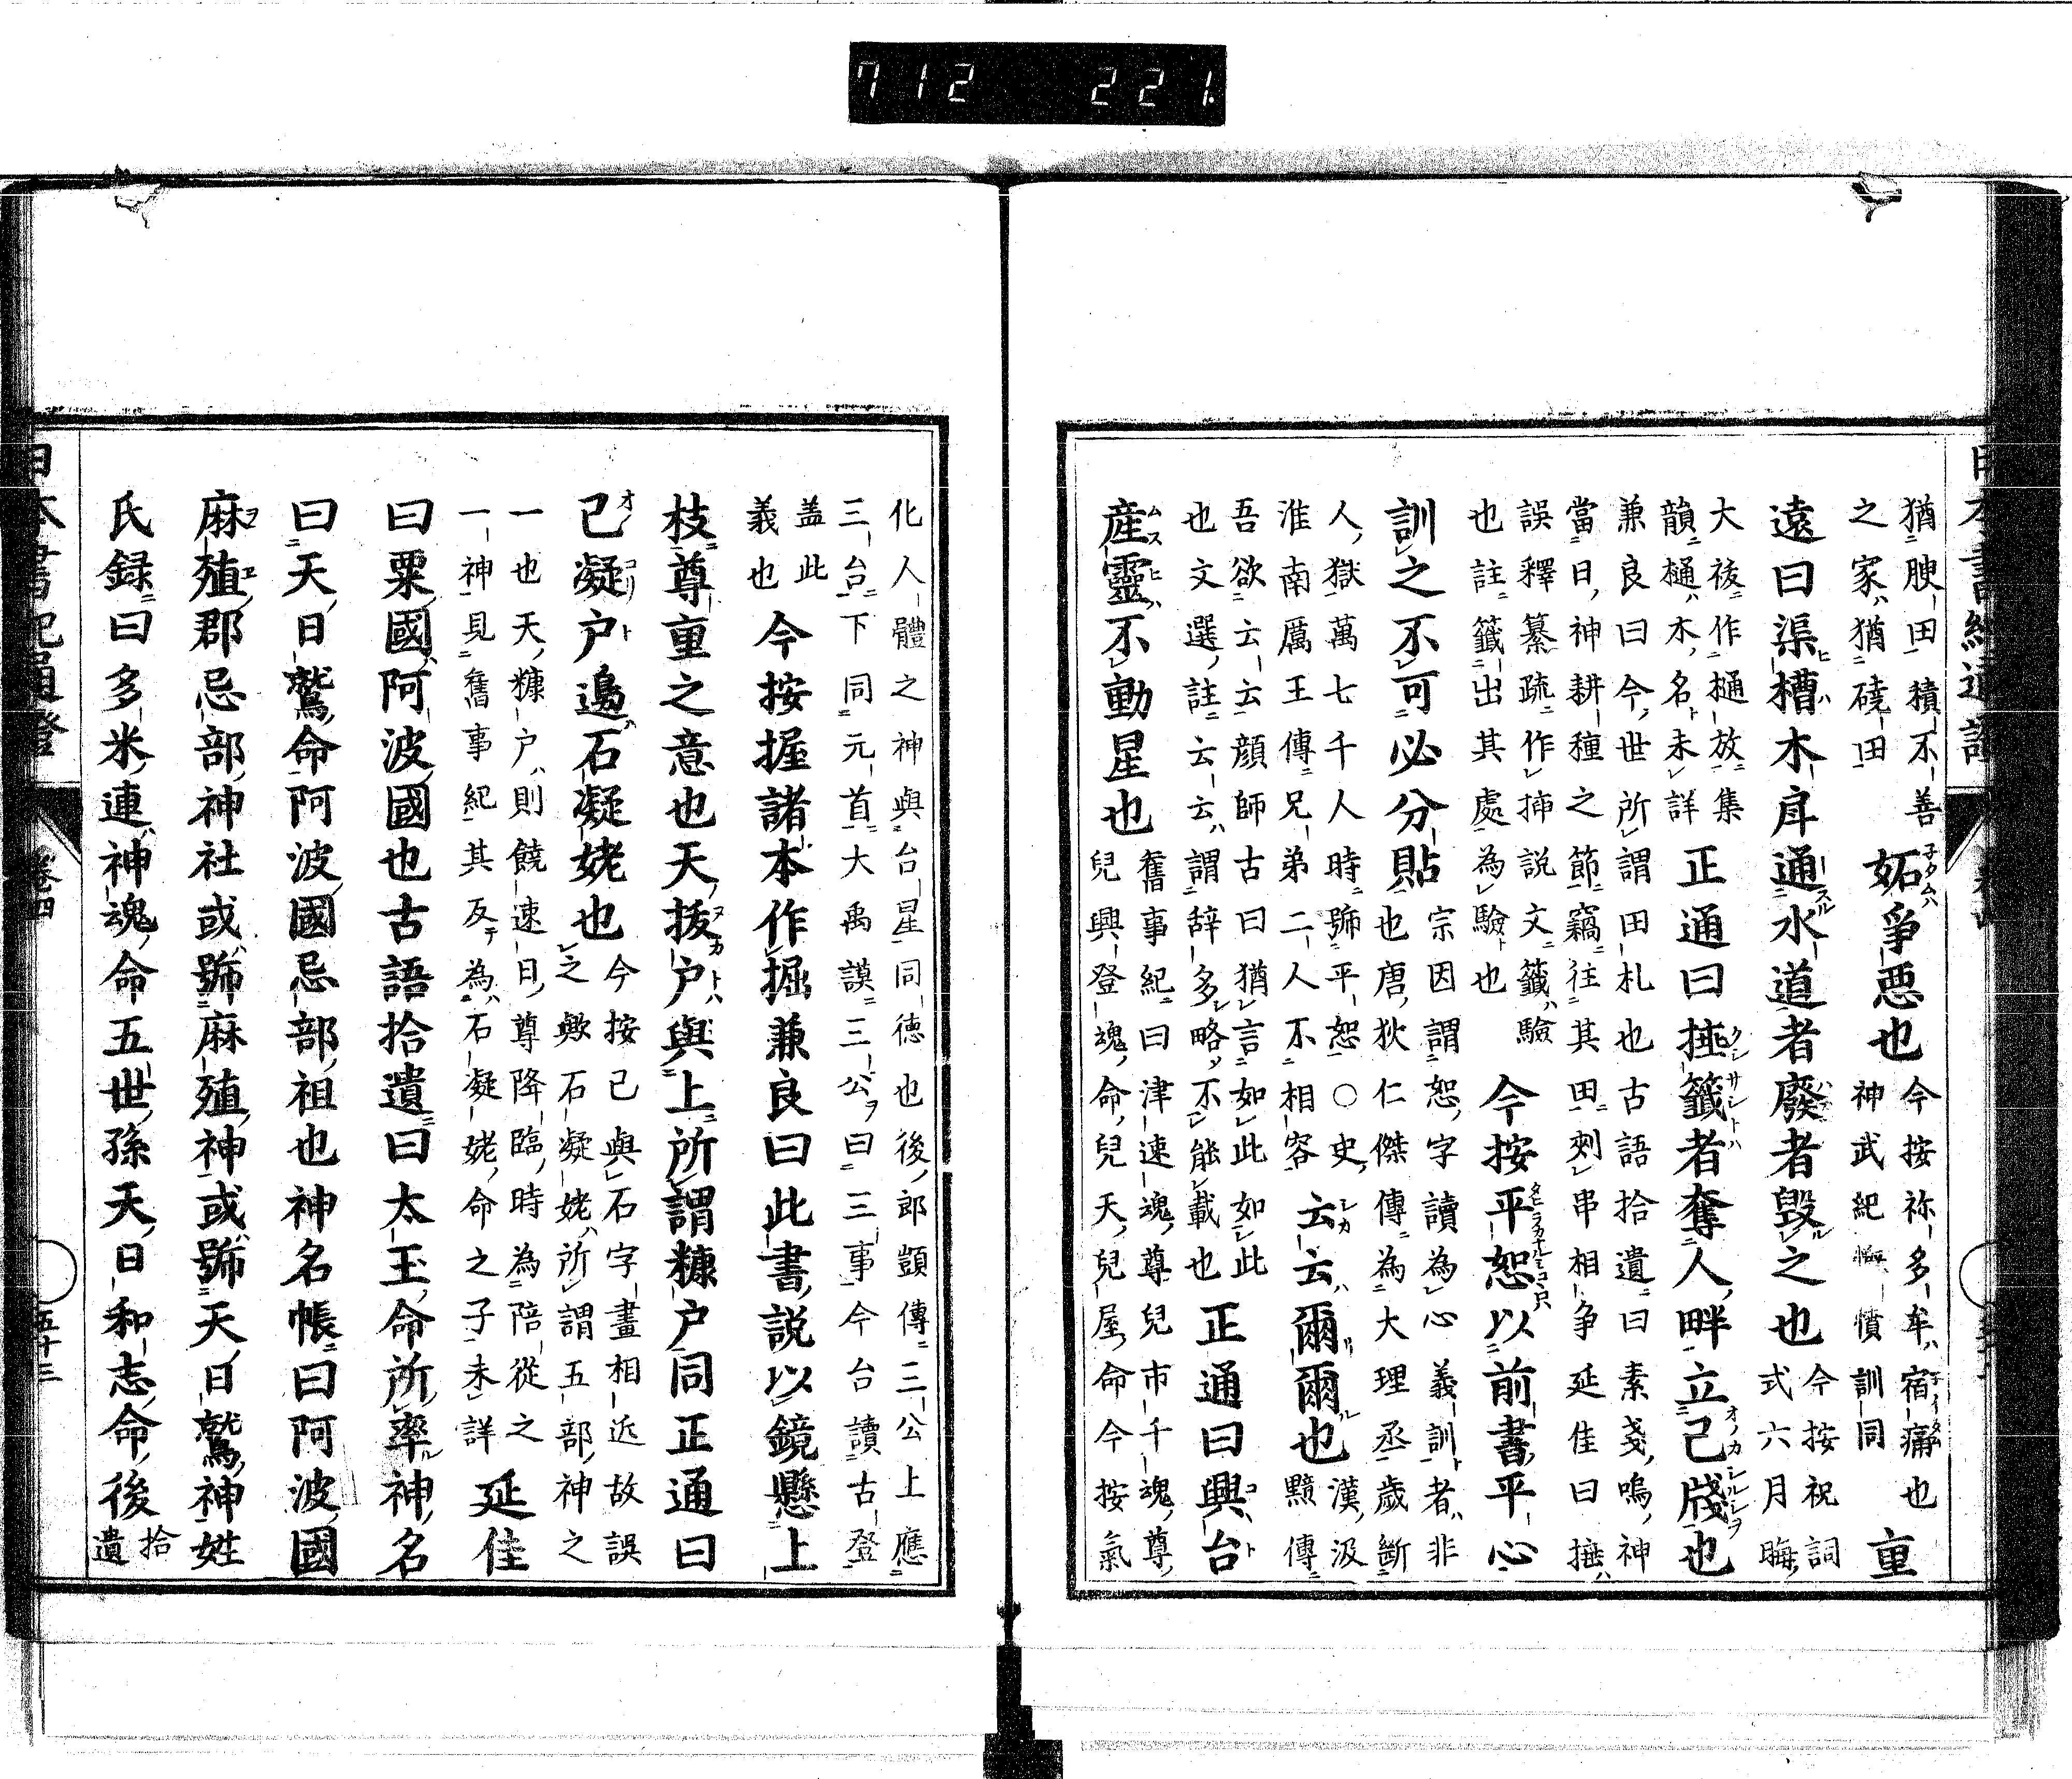 712 221.
猶腴田積不善
之家猶磽田
妬爭悪也
今按祢多牟宿痛也
神武紀慨憤訓同
重
遠曰渠槽木戽通水道者廢者毀之也
今按祝詞
式六月晦
大祓作樋放集
韻樋木名未詳
正通曰捶籤者奪人畔立己牋也
兼良曰今世所謂田札也古語拾遺曰素戔嗚神
當日神耕種之節竊往其田刺串相争延佳曰捶
誤釋纂疏作挿説文籤驗
也註籤出其處為驗也
今按平恕以前書平心
訓之不可必分貼
宗因謂恕字讀為心義訓者非
也唐狄仁傑傳為大理丞歲斷
人獄萬七千人時號平恕○史
淮南厲王傳兄弟二人不相容
云云爾爾也
漢汲
黯傳
吾欲云云顔師古曰猶言如此如此
也文選註云云謂辞多略不能載也
正通曰興台
産靈不動星也
舊事紀曰津速魂尊兒市千魂尊
兒興登魂命兒天兒屋命今按氣
化人體之神與台星同徳也後郎顗傳三公上應
三台下同元首大禹謨三公曰三事今台讀古登
盖此
義也
今按握諸本作掘兼良曰此書説以鏡懸上
枝尊重之意也天抜戸與上所謂糠戸同正通曰
己凝戸邊石凝姥也
今按己與石字畫相近故誤
之歟石凝姥所謂五部神之
一也天糠戸則饒速日尊降臨時為陪從之
一神見舊事紀其反為石凝姥命之子未詳
延佳
曰粟國阿波國也古語拾遺曰太玉命所率神名
曰天日鷲命阿波國忌部祖也神名帳曰阿波國
麻殖郡忌部神社或號麻殖神或號天日鷲神姓
氏録曰多米連神魂命五世孫天日和志命後
拾
遺
卷四
五十三